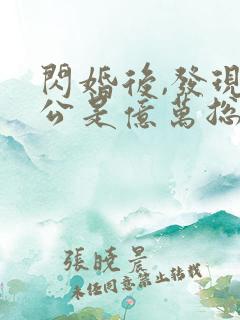 閃婚後,發現
公是億萬總
張曉晨
未經同意禁止轉載